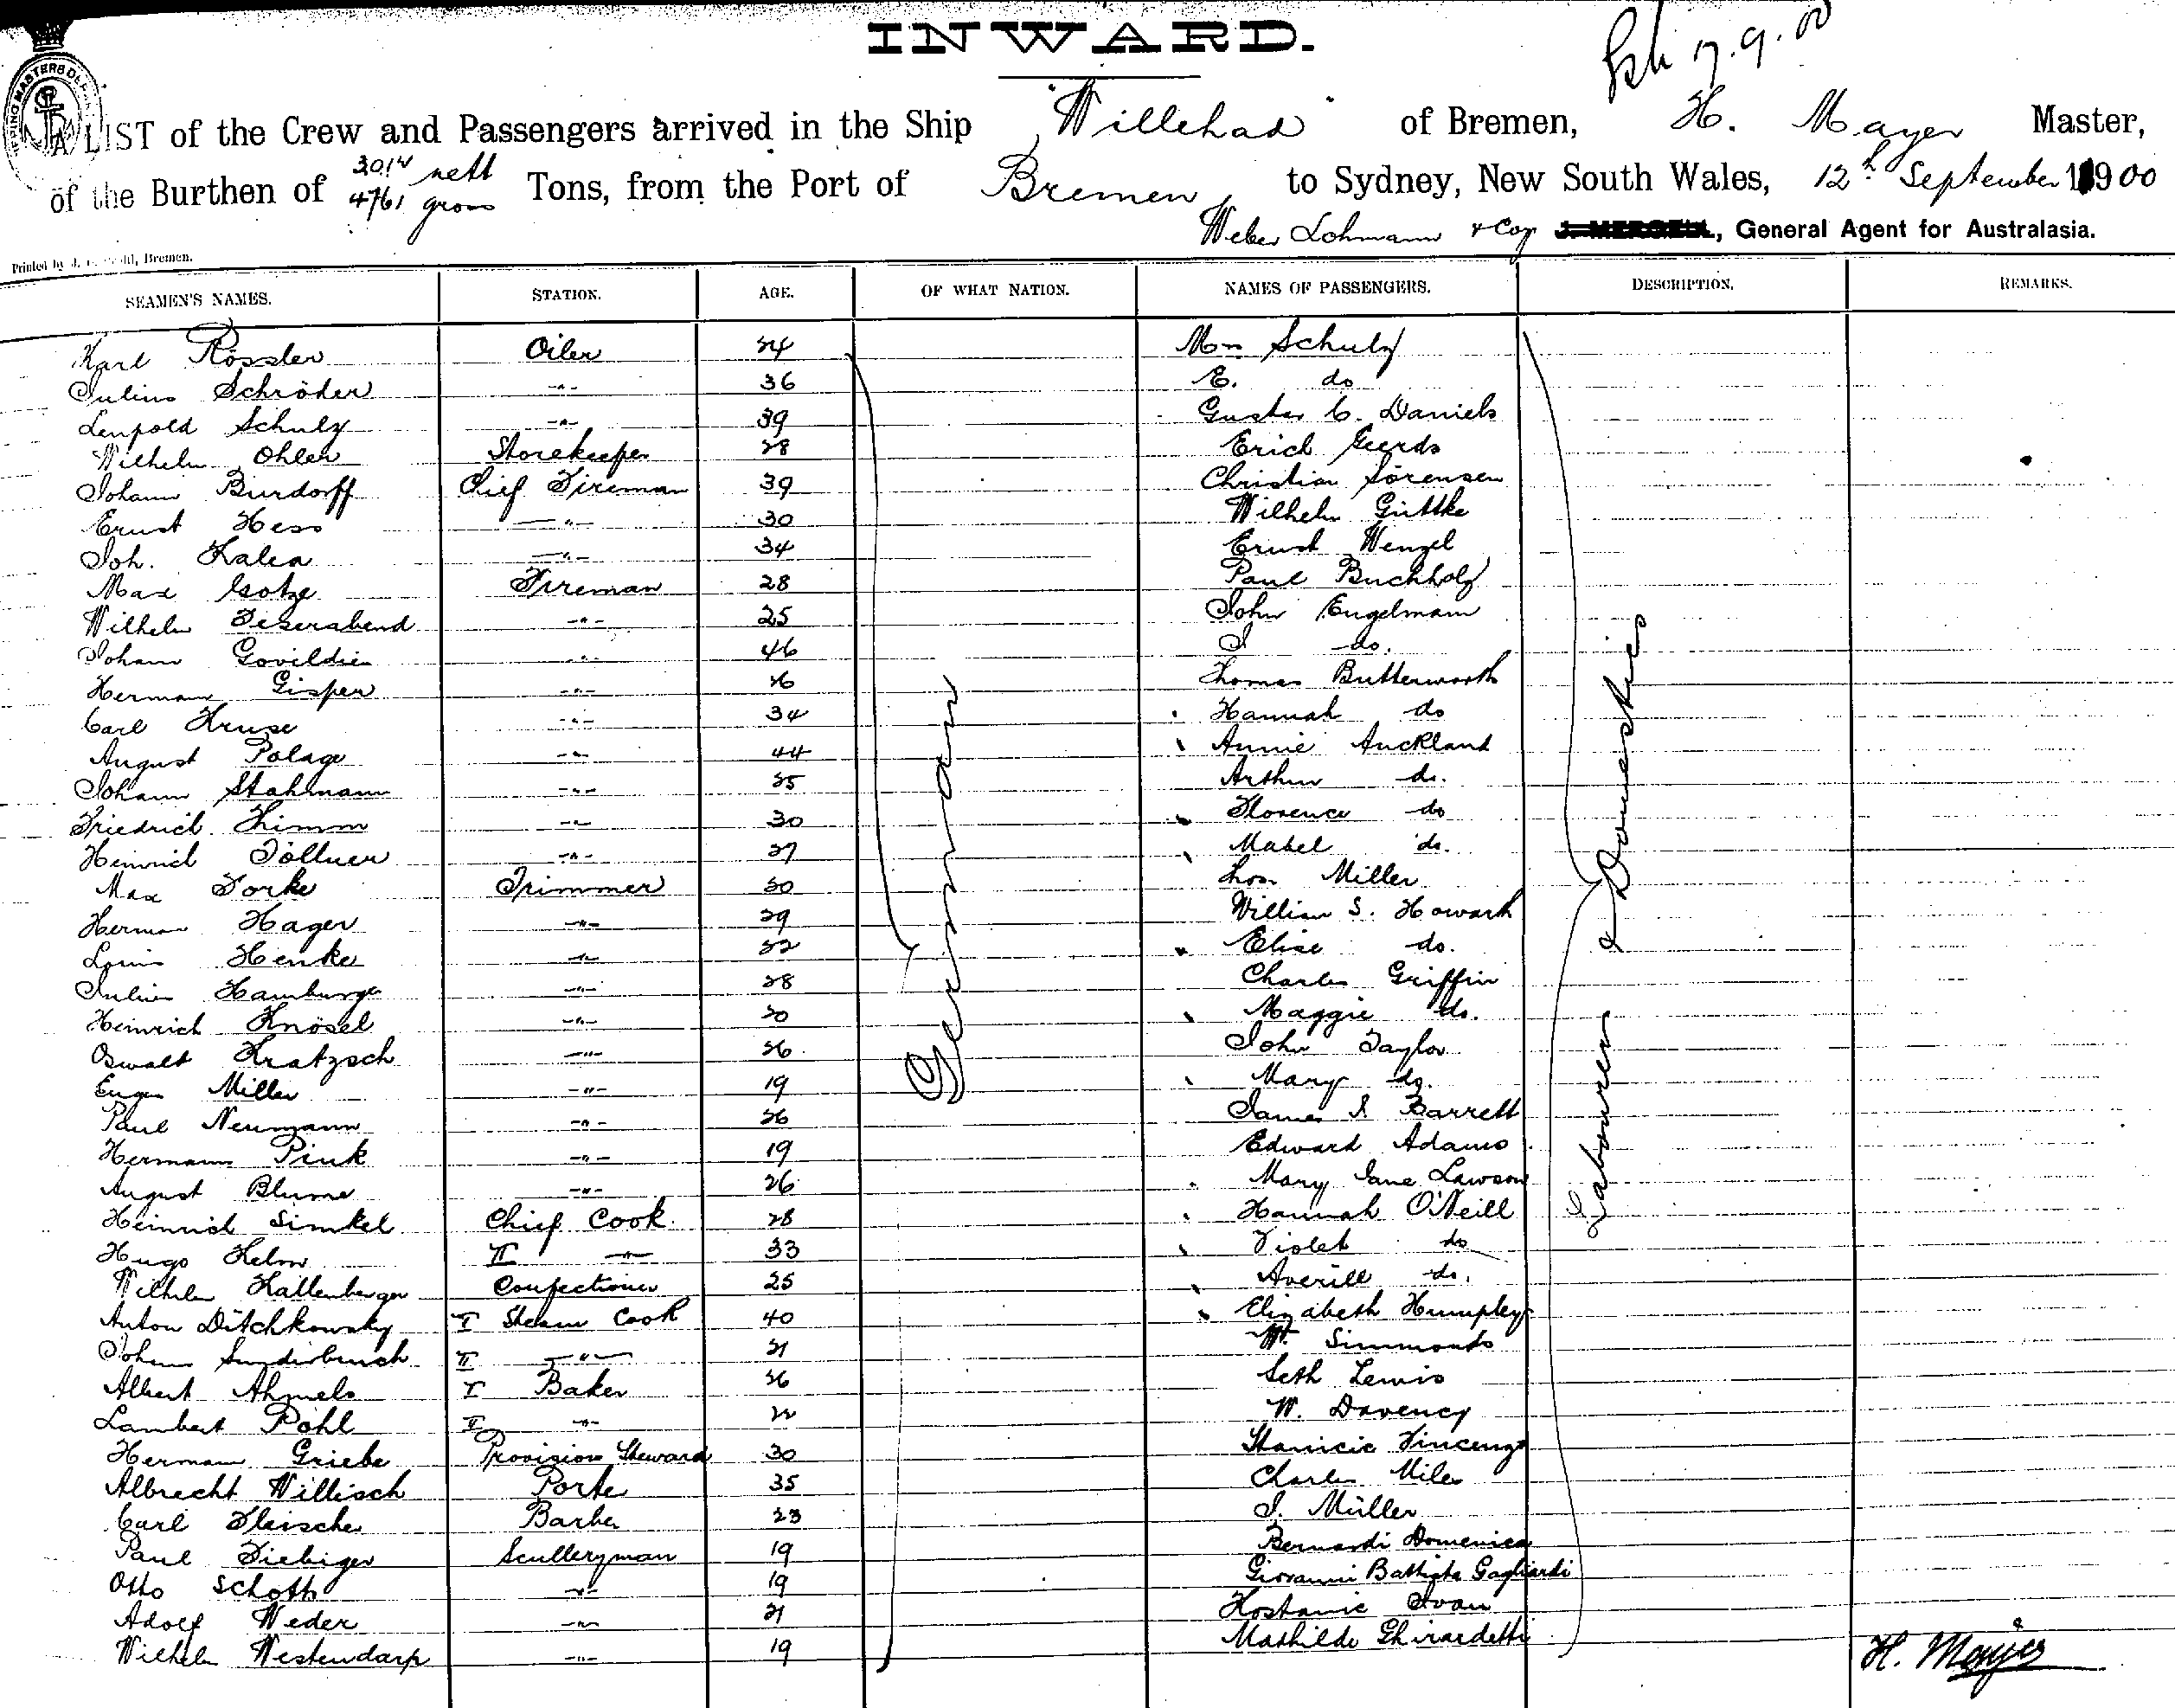 INWARD.
17.9.00
A LIST of the Crew and Passengers arrived in the Ship "Willehad" of Bremen, H. Mayer Master,
of the Burthen of 3014 nett 4761 gross Tons, from the Port of Bremen, to Sydney, New South Wales, 12th September 1900
Weber Lohmann & Coy J. MERGELL, General Agent for Australasia.
Printed by J. Bremen.
SEAMEN'S NAMES. STATION. AGE. OF WHAT NATION. NAMES OF PASSENGERS. DESCRIPTION. REMARKS.
German
Labourers & Domestics
Karl Rössler Oiler 24 Mrs Schulz
Julius Schröder -"- 36 E. do
Leopold Schulz -"- 39 Gustav C. Daniels
Wilhelm Ohlen Storekeeper 28 Erich Geerds
Johann Burdorff Chief Fireman 39 Christian Sörensen
Ernst Hess -"- 30 Wilhelm Güttke
Joh. Kalea -"- 34 Ernst Wenzel
Max Gotze Fireman 28 Paul Buchholz
Wilhelm -"- 25 John Engelmann
Johann -"- 46 J do.
Hermann Gisper -"- 26 Thomas Butterworth
Carl Kruse -"- 34 Hannah do
August Polage -"- 44 Annie Auckland
Johann Stahmann -"- 25 Arthur do.
Friedrich Kimm -"- 30 Florence do
Heinrich Töllner -"- 27 Mabel do.
Max Torke Trimmer 20 Thos. Miller
Herman Hager -"- 29 William S. Howarth
Louis Henke -"- 22 Elise do.
Julius Hamburger -"- 28 Charles Griffin
Heinrich Knösel -"- 20 Maggie do.
Oswalt Kratzsch -"- 26 John Taylor
Eugen Miller -"- 19 Mary do.
Paul Neumann -"- 26 James J. Barrett
Hermann Pink -"- 19 Edward Adams
August Blume -"- 26 Mary Jane Lawson
Heinrich Simkel Chief Cook 28 Hannah O'Neill
Hugo Kelm II -"- 33 Violet do
Wilhelm Kallenberger Confectioner 25 Averill do.
Anton Ditchkowsky I Steam Cook 40 Elizabeth Humpleys
Johann II -"- 21 W. Simmonds
Albert Ahmels I Baker 26 Seth Lewis
Lambert Pohl II -"- 22 W. Davency
Hermann Griebe Provision Steward 30 Vincenzo
Albrecht Willisch Porter 35 Charles Miles
Carl Fleischer Barber 23 J. Müller
Paul Fiebiger Sculleryman 19 Bernardi Domenica
Otto Schott -"- 19 Giovanni Battista Gagliardi
Adolf Weder -"- 21 Kostanic Ivan
Wilhelm Westendarp -"- 19 Mathilde Ghirardetti
H. Mayer